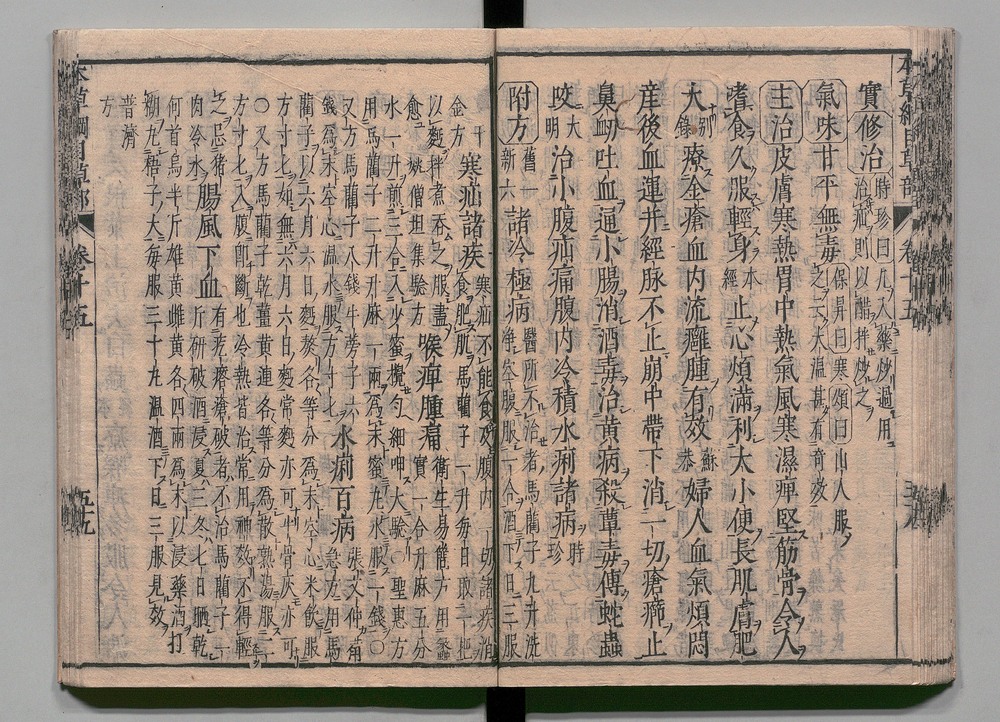 實 修治 時珍曰凡入藥炒過用治疝則以醋拌炒之
氣味甘平無毒 保昇曰寒頌曰山人服之云大温甚有奇效
主治皮膚寒熱胃中熱氣風寒濕痺堅筋骨令人
嗜食久服輕身 本經 止心煩滿利大小便長肌膚肥
大 别錄 療金瘡血内流癰腫有效 蘇恭 婦人血氣煩悶
産後血運并經脉不止崩中帶下消一切瘡癤止
鼻衂吐血通小腸消酒毒治黄病殺蕈毒傅蛇蟲
咬 大明 治小腹疝痛腹内冷積水痢諸病 時珍
附方 舊一新六 諸冷極病 醫所不治者馬藺子九升洗净空腹服一合酒下日三服
千金方 寒疝諸疾 寒疝不能食及腹内一切諸疾消食肥肌馬藺子一升每日取一把
以麪拌煮吞之服盡愈 姚僧坦集驗方 喉痺腫痛 衛生易簡方用蠡實一合升麻五分
水一升煎三合入少蜜攪勻細呷大驗○聖惠方
用馬藺子二升升麻一兩爲末蜜丸水服一錢○
又方馬藺子八錢牛蒡子六錢爲末空心温水服方寸七 水痢百病 張文仲備急方用馬
藺子以六月六日麪熬各等分爲末空心米飲服
方寸匕如無六月六日麪常麪亦可牛骨灰亦可
○又方馬藺子乾薑黄連各等分爲散熟湯服二
方寸匕入腹卽斷也冷熱皆治常用神效不得輕
之忌猪肉冷水 腸風下血 有疙瘩瘡破者不治馬藺子一斤研破酒浸夏三冬七日晒乾
何首烏半斤雄黄雌黄各四兩爲末以浸藥酒打
糊丸梧子大每服三十丸温酒下日三服見效
普濟方
本草綱目草部 卷十五 五十九